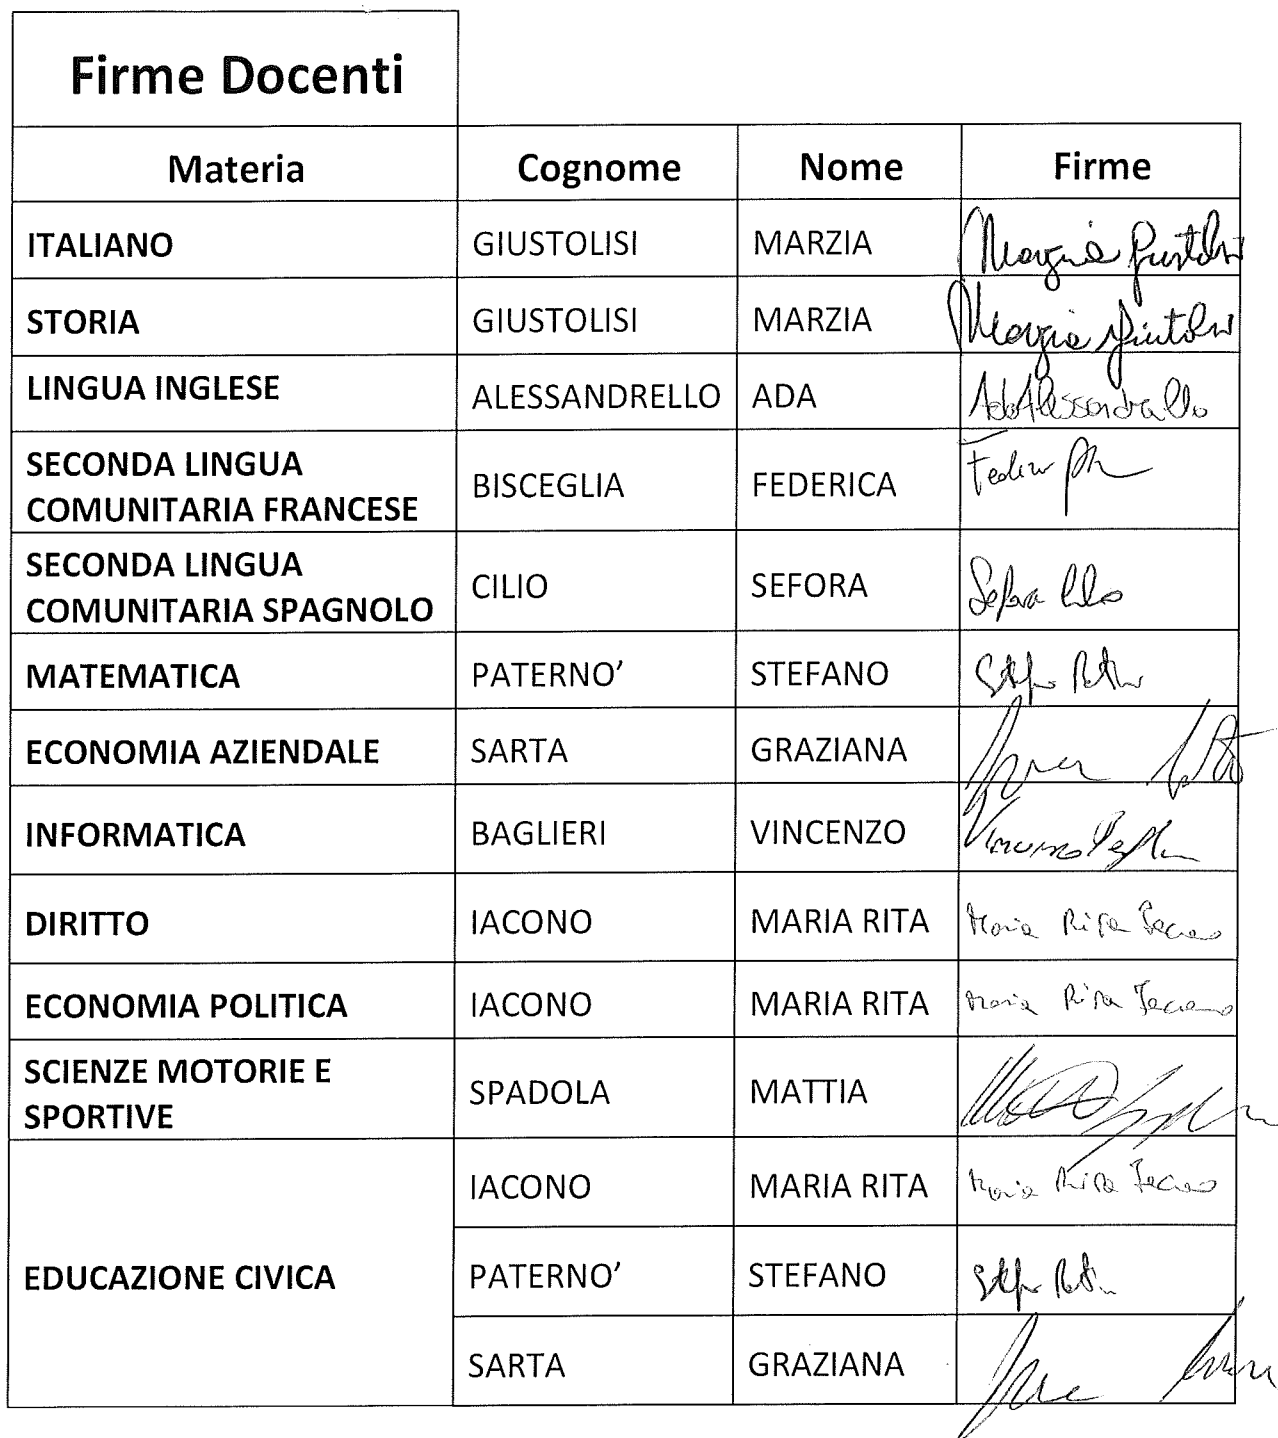 Firme Docenti
Materia Cognome Nome Firme
ITALIANO GIUSTOLISI MARZIA Marzia Giustolisi
STORIA GIUSTOLISI MARZIA Marzia Giustolisi
LINGUA INGLESE ALESSANDRELLO ADA Ada Alessandrello
SECONDA LINGUA
COMUNITARIA FRANCESE BISCEGLIA FEDERICA
SECONDA LINGUA
COMUNITARIA SPAGNOLO CILIO SEFORA Sefora Cilio
MATEMATICA PATERNO’ STEFANO
ECONOMIA AZIENDALE SARTA GRAZIANA
INFORMATICA BAGLIERI VINCENZO Vincenzo
DIRITTO IACONO MARIA RITA Maria Rita Iacono
ECONOMIA POLITICA IACONO MARIA RITA Maria Rita Iacono
SCIENZE MOTORIE E
SPORTIVE SPADOLA MATTIA
EDUCAZIONE CIVICA IACONO MARIA RITA Maria Rita Iacono
PATERNO’ STEFANO
SARTA GRAZIANA